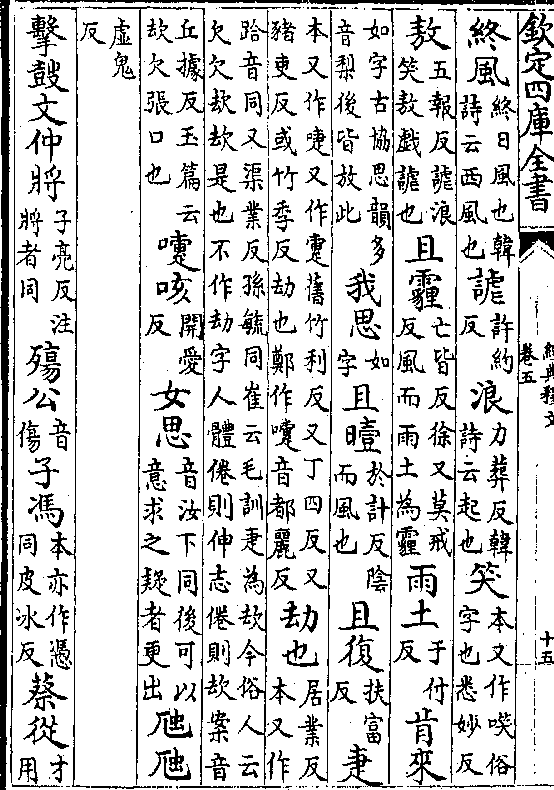 欽定四庫全書
經典釋文
卷五
十五
終風終日風也韓詩云西風也謔許約反浪力葬反韓詩云起也笑本又作㗛俗字也悉妙反
敖五報反謔浪笑敖戲謔也且霾亡皆反徐又莫戒反風而雨土為霾雨土于付反肯來
如字古協思韻多音梨後皆放此我思如字且曀於計反陰而風也且復扶富反疌
本又作啑又作疐舊竹利反又丁四反又豬吏反或竹季反劫也鄭作嚏音都麗反劫也居業反本又作
跲音同又渠業反孫毓同崔云毛訓疌為㰦今俗人云欠欠㰦㰦是也不作劫字人體倦則伸志倦則㰦案音
丘據反玉篇云㰦欠張口也嚏咳開愛反女思音汝下同後可以意求之疑者更出虺虺
虛鬼反
擊鼓文仲將子亮反注將者同殤公音傷子馮本亦作憑同皮冰反蔡從才用